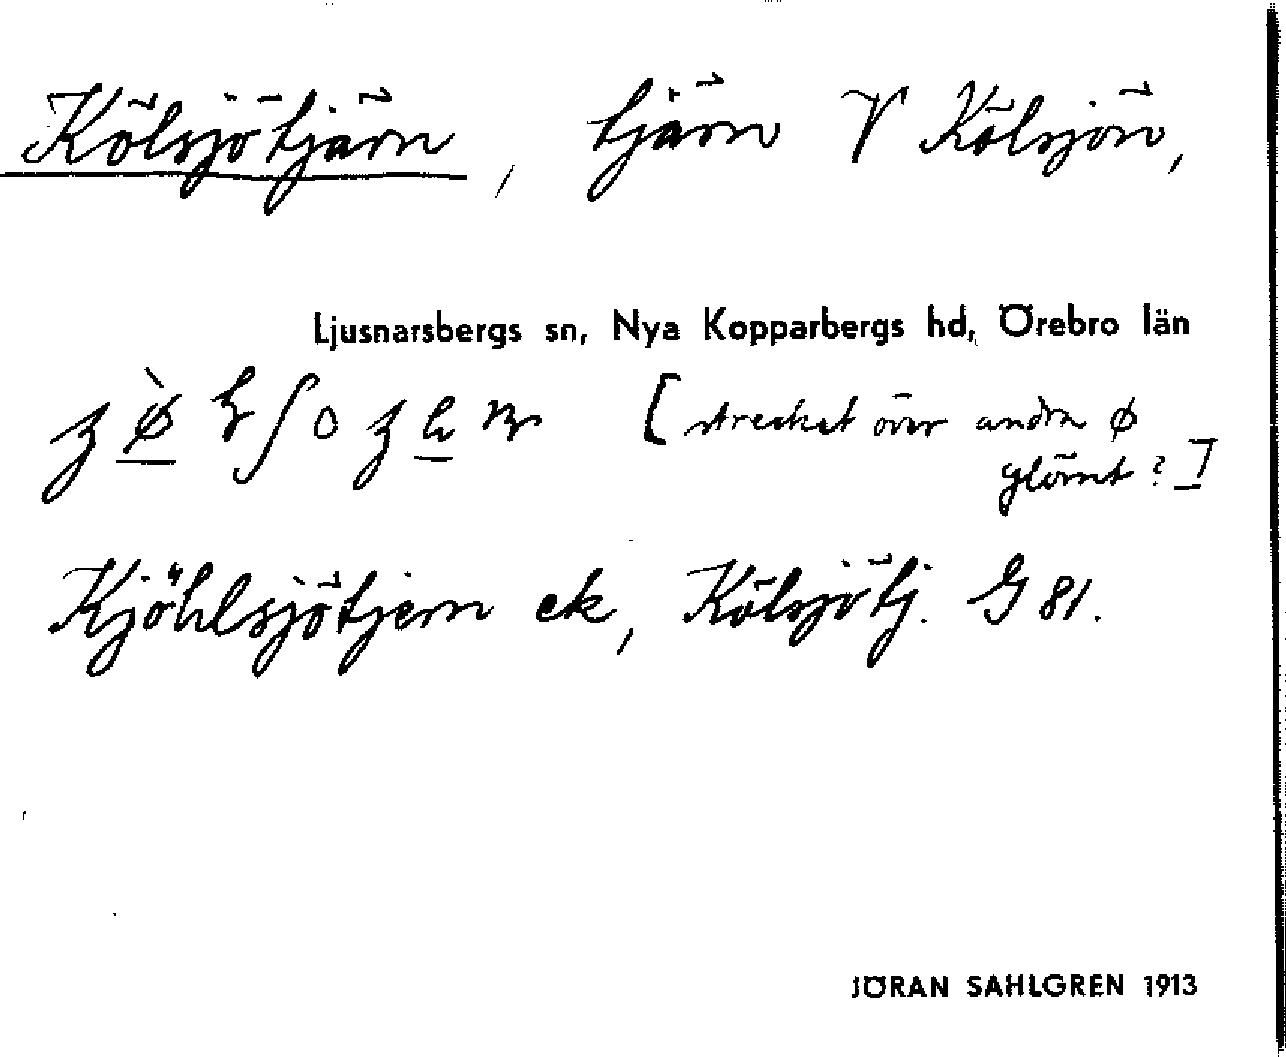 Kölsjötjärn, tjärn V Kölsjön,
Ljusnarsbergs sn, Nya Kopparbergs hd, Örebro län
[strecket över andra ø
glömt?]
Kjöhlsjötjern ek, Kölsjötj. G 81.
JÖRAN SAHLGREN 1913